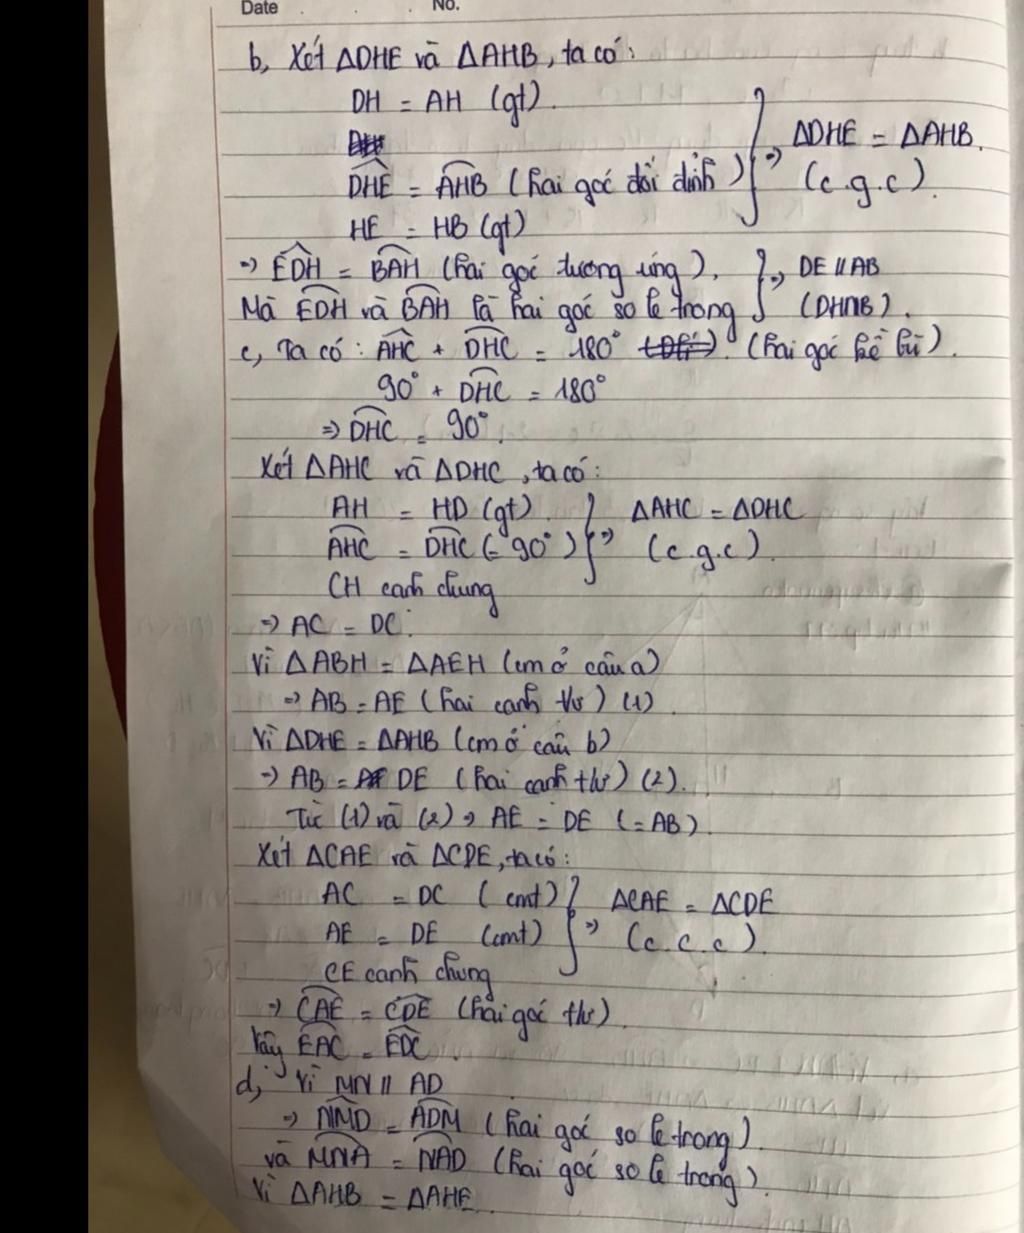 Date No.
b, Xét ΔDHE và ΔAHB, ta có:
DH = AH (gt).
DHE = AHB (hai góc đối đỉnh) } => ΔDHE = ΔAHB.
HE = HB (gt) (c.g.c).
=> EDH = BAH (hai góc tương ứng). } => DE // AB
Mà EDH và BAH là hai góc so le trong (DHNB).
c, Ta có: AHC + DHC = 180° (hai góc kề bù).
90° + DHC = 180°
=> DHC = 90°.
Xét ΔAHC và ΔDHC, ta có:
AH = HD (gt) } ΔAHC = ΔDHC
AHC = DHC (= 90°) => (c.g.c).
CH cạnh chung
=> AC = DC.
Vì ΔABH = ΔAEH (cm ở câu a)
=> AB = AE (hai cạnh tư) (1).
Vì ΔDHE = ΔAHB (cm ở câu b)
=> AB = DE (hai cạnh tư) (2).
Từ (1) và (2) => AE = DE (= AB).
Xét ΔCAE và ΔCDE, ta có:
AC = DC (cmt) } ΔCAE = ΔCDE
AE = DE (cmt) => (c.c.c).
CE cạnh chung
=> CAE = CDE (hai góc tư).
Vậy EAC = EDC.
d, Vì MN // AD
=> NMD = ADM (hai góc so le trong).
và MNA = NAD (hai góc so le trong).
Vì ΔAHB = ΔAHE